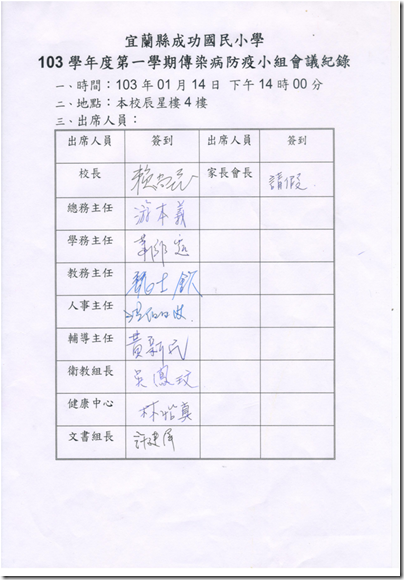 宜蘭縣成功國民小學
103 學年度第一學期傳染病防疫小組會議紀錄
一、時間：103 年 01 月 14 日 下午 14 時 00 分
二、地點：本校辰星樓 4 樓
三、出席人員：
出席人員 簽到 出席人員 簽到
校長 家長會長 請假
總務主任 游本義
學務主任
教務主任
人事主任
輔導主任 黃新民
衛教組長 吳鳳玟
健康中心 林怡真
文書組長